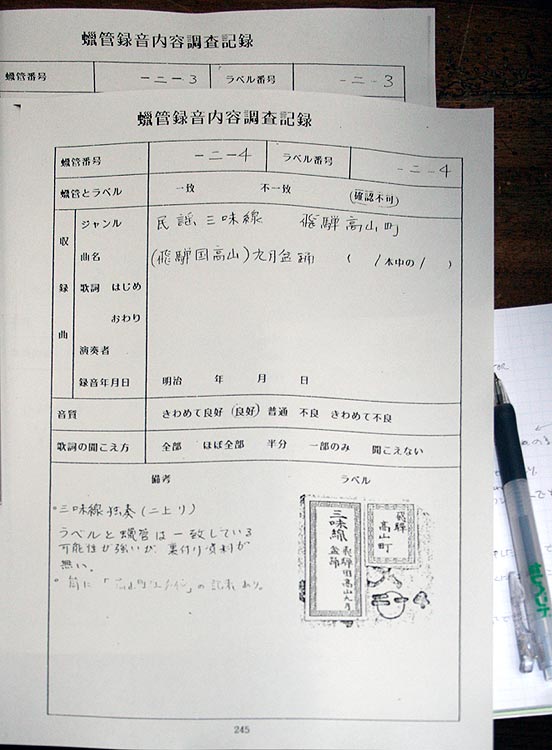 蠟管録音内容調査記録
蠟管番号 一二-3 ラベル番号 一二-3
蠟管録音内容調査記録
蠟管番号 一二-4 ラベル番号 一二-4
蠟管とラベル 一致 不一致 (確認不可)
収録曲
ジャンル 民謡 三味線 飛騨高山町
曲名 (飛騨国高山)九月盆踊 ( 1本中の1 )
歌詞 はじめ
おわり
演奏者
録音年月日 明治 年 月 日
音質 きわめて良好 (良好) 普通 不良 きわめて不良
歌詞の聞こえ方 全部 ほぼ全部 半分 一部のみ 聞こえない
備考 ラベル
三味線独奏(二上り)
ラベルと蠟管は一致している
可能性が強いが、裏付け資料が
無い。
の記載あり。
飛騨
高山町
三味線
飛騨国高山九月
盆踊
245